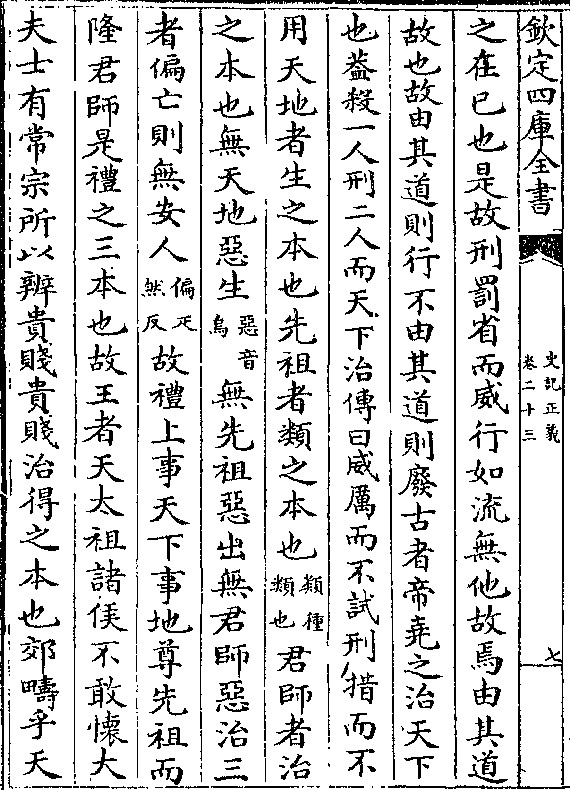 欽定四庫全書
史記正義
卷二十三
七
之在已也是故刑罰省而威行如流無他故焉由其道
故也故由其道則行不由其道則廢古者帝堯之治天下
也葢殺一人刑二人而天下治傳曰威厲而不試刑措而不
用天地者生之本也先祖者類之本也類種類也君師者治
之本也無天地惡生惡音烏無先祖惡出無君師惡治三
者偏亡則無安人偏疋然反故禮上事天下事地尊先祖而
隆君師是禮之三本也故王者天太祖諸侯不敢懷大
夫士有常宗所以辨貴賤貴賤治得之本也郊疇乎天